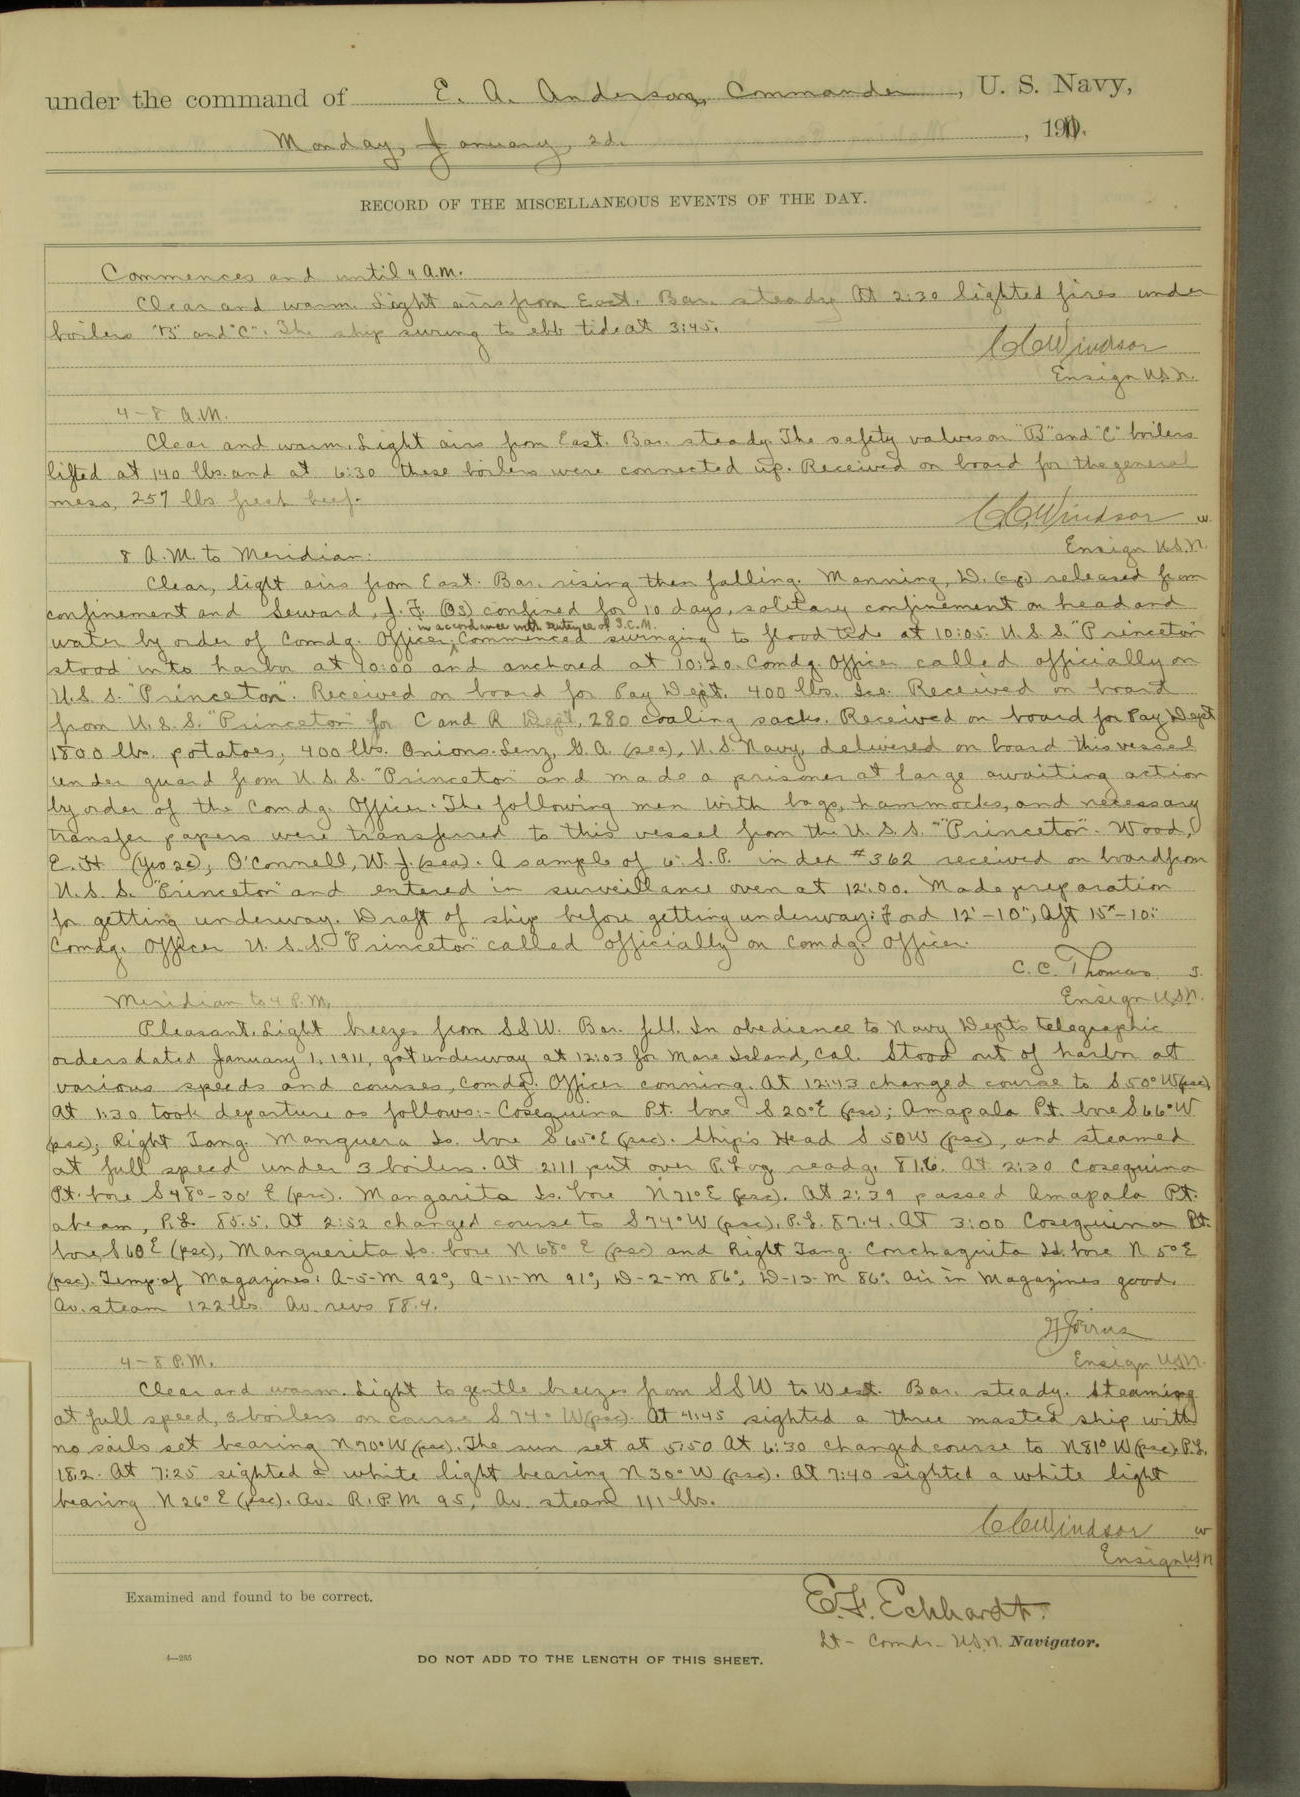 under the command of E. A. Anderson, Commander, U. S. Navy,
Monday, January 2d., 1911.
RECORD OF THE MISCELLANEOUS EVENTS OF THE DAY.
Commences and until 4 A.M.
Clear and warm. Light airs from East. Bar. steady. At 2:30 lighted fires under
boilers "B" and "C". The ship swung to ebb tide at 3:45.
C C Windsor
Ensign U.S.N.
4-8 A.M.
Clear and warm. Light airs from East. Bar. steady. The safety valves on "B" and "C" boilers
lifted at 140 lbs. and at 6:30 these boilers were connected up. Received on board for the general
mess, 257 lbs fresh beef.
C.C. Windsor w.
Ensign U.S.N.
8 A.M. to Meridian:
Clear, light airs from East. Bar. rising then falling. Manning, D. (cp) released from
confinement and Seward, J. F. (OS) confined for 10 days, solitary confinement on bread and
in accordance with sentence of S.C.M.
water by order of Comdg. Officer. Commenced swinging to flood tide at 10:05. U.S.S. "Princeton"
stood into harbor at 10:00 and anchored at 10:20. Comdg. Officer called officially on
U.S.S. "Princeton". Received on board for Pay Dept. 400 lbs. Ice. Received on board
from U.S.S. "Princeton" for C and R Dept, 280 coaling sacks. Received on board for Pay Dept
1800 lbs. potatoes, 400 lbs. Onions. Lenz, G. A. (sea), U.S. Navy, delivered on board this vessel
under guard from U.S.S. "Princeton" and made a prisoner at large awaiting action
by order of the Comdg. Officer. The following men with bags, hammocks, and necessary
transfer papers were transferred to this vessel from the U.S.S. "Princeton". Wood,
E. H (Yeo 2c), O'Connell, W. J. (sea). A sample of 6" S.P. index #362 received on board from
U.S.S. "Princeton" and entered in surveillance oven at 12:00. Made preparation
for getting underway. Draft of ship before getting underway: Ford 12'-10", Aft 15'-10".
Comdg. Officer U.S.S. "Princeton" called officially on Comdg. Officer.
C. C. Thomas J.
Ensign U.S.N.
Meridian to 4 P.M.
Pleasant. Light breezes from SSW. Bar. fell. In obedience to Navy Dept's telegraphic
orders dated January 1, 1911, got underway at 12:03 for Mare Island, Cal. Stood out of harbor at
various speeds and courses, Comdg. Officer conning. At 12:43 changed course to S 50° W (psc).
At 1:30 took departure as follows:- Cosequina Pt. bore S 20° E (psc); Amapala Pt. bore S 66° W
(psc); Right Tang. Manguera Is. bore S 65° E (psc). Ship's Head S 50 W (psc), and steamed
at full speed under 3 boilers. At 2:11 put over P. Log readg. 81.6. At 2:30 Cosequina
Pt. bore S 48°-30' E (psc). Margarita Is. bore N 71° E (psc). At 2:39 passed Amapala Pt.
abeam, P.L. 85.5. At 2:52 changed course to S 74° W (psc), P.L. 87.4. At 3:00 Cosequina Pt.
bore S 60 E (psc), Manguerita Is. bore N 68° E (psc) and Right Tang. Conchaguita Is. bore N 5° E
(psc). Temp. of Magazines: A-5-M 92°, A-11-M 91°, D-2-M 86°, D-13-M 86°. Air in Magazines good.
Av. steam 122 lbs. Av. revs 88.4.
Ensign U.S.N.
4-8 P.M.
Clear and warm. Light to gentle breezes from SSW to West. Bar. steady. Steaming
at full speed, 3 boilers on course S 74° W (psc). At 4:45 sighted a three masted ship with
no sails set bearing N 70° W (psc). The sun set at 5:50 At 6:30 changed course to N 81° W (psc) P.L.
18.2. At 7:25 sighted a white light bearing N 30° W (psc). At 7:40 sighted a white light
bearing N 26° E (psc). Av. R.P.M. 95, Av. steam 111 lbs.
C C Windsor w
Ensign U.S.N
Examined and found to be correct.
E.F. Eckhardt.
Lt-Comdr-U.S.N. Navigator.
4-285
DO NOT ADD TO THE LENGTH OF THIS SHEET.